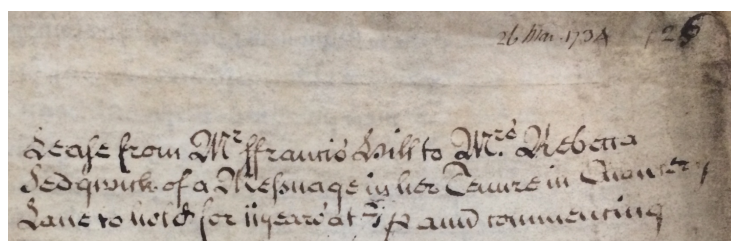 26 Mar. 1734
Lease from Mr ffrancis Hill to Mrs Rebecca
Sedgwick of a Messuage in her Tenure in Chancery
Lane to hold for 11 years at p ann commencing